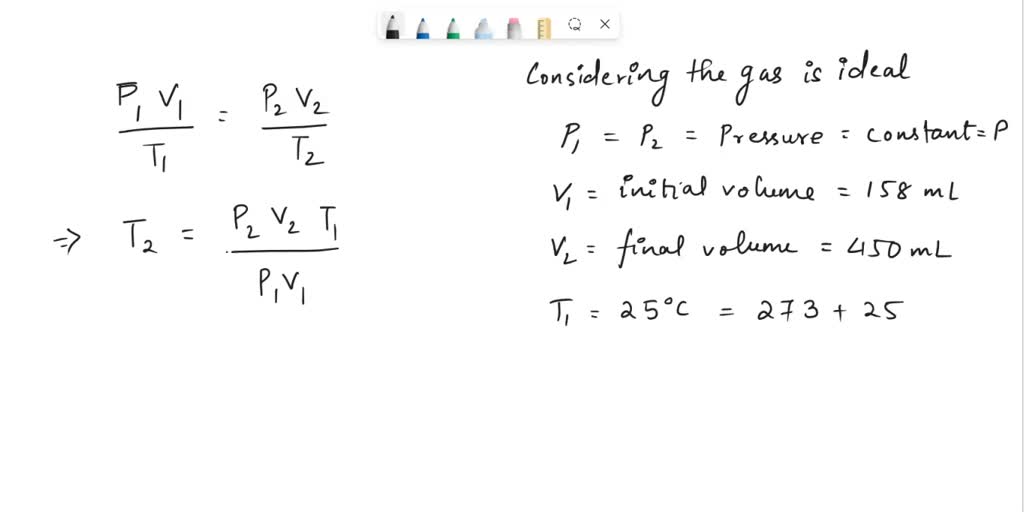 P₁ V₁ / T₁ = P₂ V₂ / T₂
⇒ T₂ = P₂ V₂ T₁ / P₁ V₁
Considering the gas is ideal
P₁ = P₂ = Pressure = constant = P
V₁ = initial volume = 158 mL
V₂ = final volume = 450 mL
T₁ = 25°C = 273 + 25